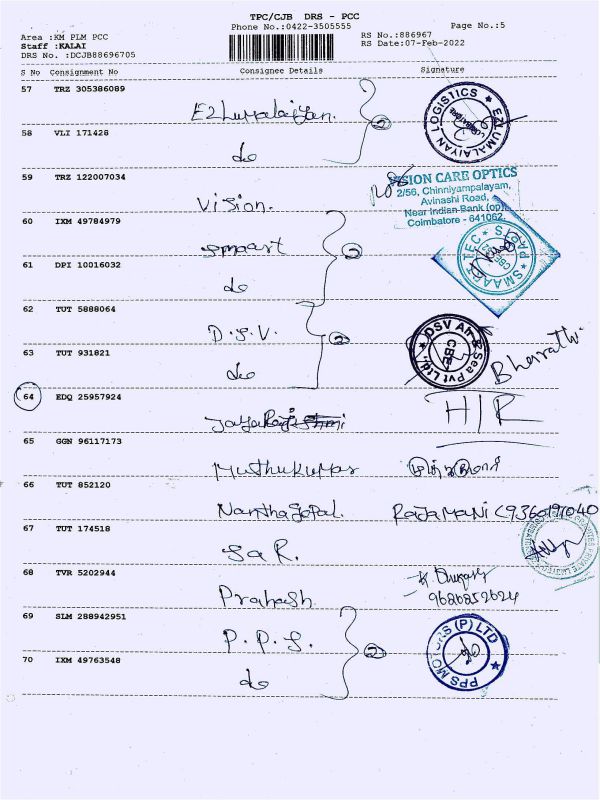 TPC/CJB DRS - PCC
Phone No.:0422-3505555 Page No.:5
Area :KM PLM PCC RS No.:886967
Staff :KALAI RS Date:07-Feb-2022
DRS No. :DCJB88696705
S No Consignment No Consignee Details Signature
57 TRZ 305386089 Ezhumalaiyan. 2 EZHUMALAIYAN LOGISTICS
58 VLI 171428 do
59 TRZ 122007034 Vision. VISION CARE OPTICS
2/56, Chinniyampalayam,
Avinashi Road,
Near Indian Bank (opp),
Coimbatore - 641062.
60 IXM 49784979 Smaart 2 SMAART TEC PARTS
61 DPI 10016032 do
62 TUT 5888064 D.S.V. 2 DSV Air & Sea Pvt Ltd., CBE
63 TUT 931821 do Bharath.
64 EDQ 25957924 H/R
65 GGN 96117173 Muthukumar
66 TUT 852120 Nanthagopal. RAJAMANI
67 TUT 174518 SAR. PRIVATE LIMITED
68 TVR 5202944 Prakash
9626252624
69 SLM 288942951 P.P.S. 2 PPS MOTORS (P) LTD
70 IXM 49763548 do